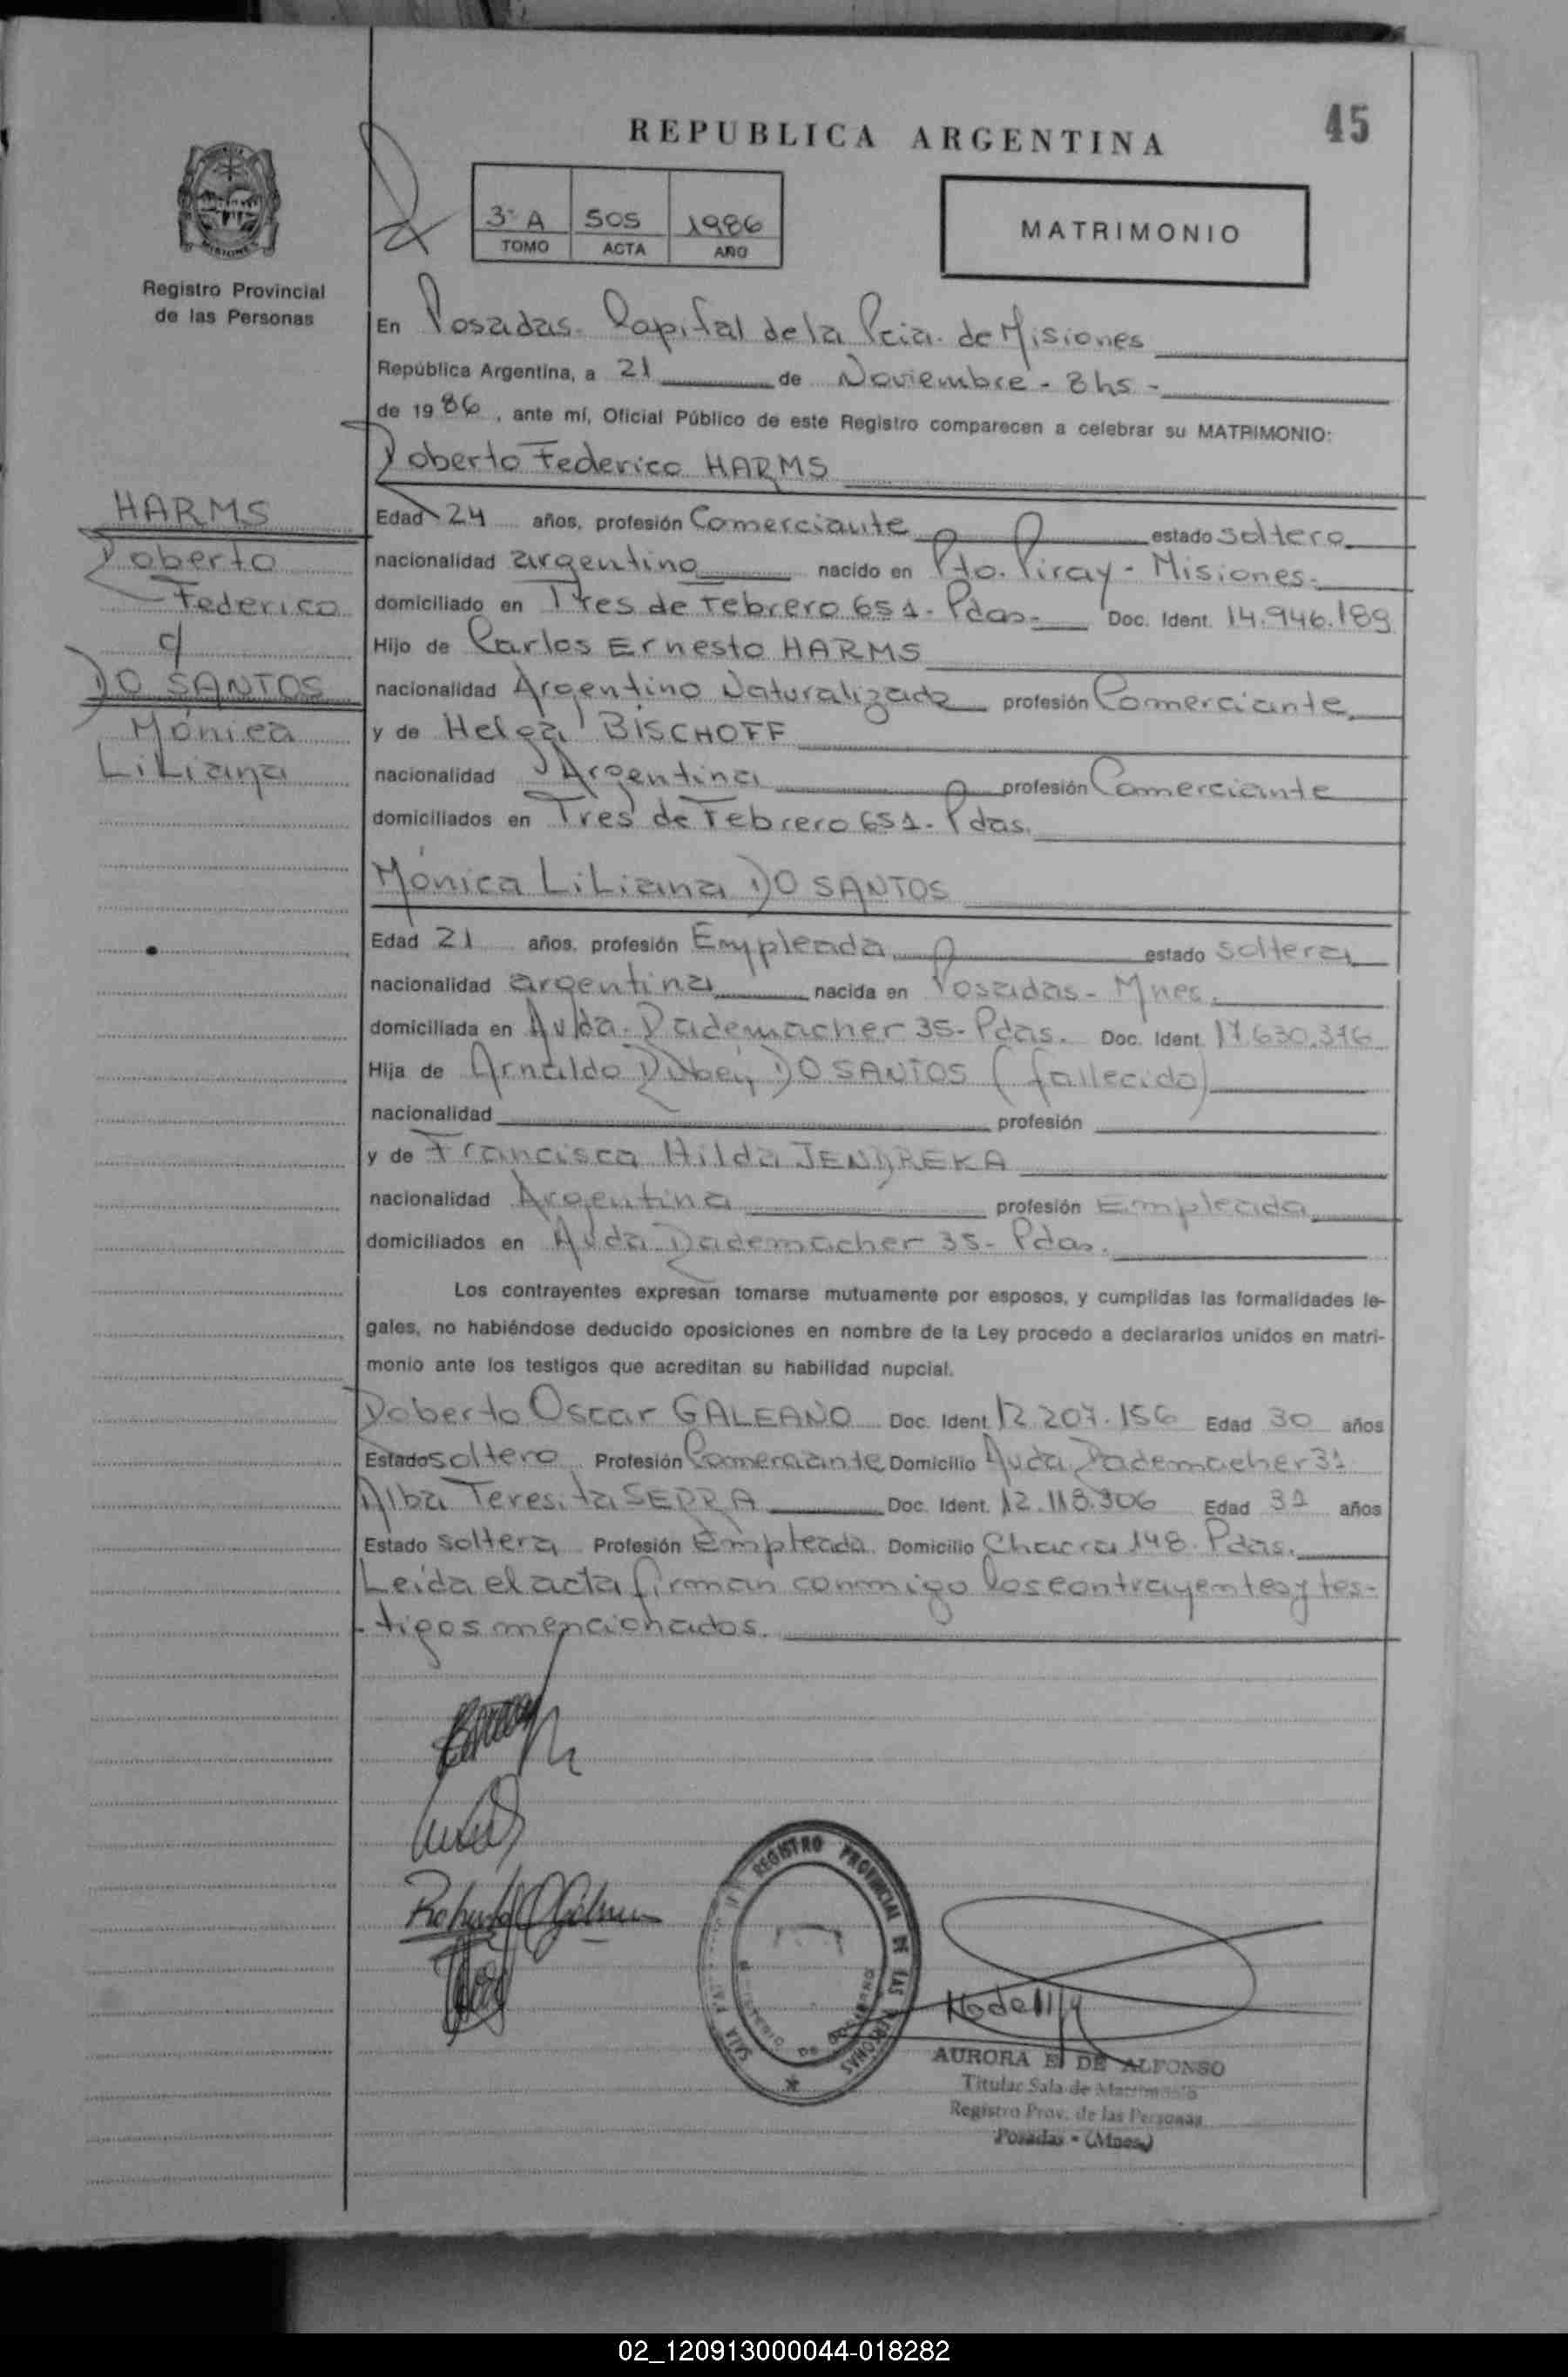 45
REPUBLICA ARGENTINA
3º A 505 1986
TOMO ACTA AÑO
MATRIMONIO
Registro Provincial
de las Personas
En Posadas. Capital de la Pcia. de Misiones
República Argentina, a 21 de Noviembre - 8 hs -
de 1986, ante mí, Oficial Público de este Registro comparecen a celebrar su MATRIMONIO:
Roberto Federico HARMS
HARMS
Roberto
Federico
c/
DO SANTOS
Mónica
Liliana
Edad 24 años, profesión Comerciante estado soltero
nacionalidad argentino nacido en Pto. Piray - Misiones.
domiciliado en Tres de Febrero 651. Pdas. Doc. Ident. 14.946.189
Hijo de Carlos Ernesto HARMS
nacionalidad Argentino Naturalizado profesión Comerciante
y de Helga BISCHOFF
nacionalidad Argentina profesión Comerciante
domiciliados en Tres de Febrero 651. Pdas.
Mónica Liliana DO SANTOS
Edad 21 años, profesión Empleada estado soltera
nacionalidad argentina nacida en Posadas - Mnes.
domiciliada en Avda. Rademacher 35 - Pdas. Doc. Ident. 17.630.376
Hija de Arnaldo DO SANTOS (fallecido)
nacionalidad profesión
y de Francisca Hilda JENDREKA
nacionalidad Argentina profesión Empleada
domiciliados en Avda Rademacher 35 - Pdas.
Los contrayentes expresan tomarse mutuamente por esposos, y cumplidas las formalidades le-
gales, no habiéndose deducido oposiciones en nombre de la Ley procedo a declararlos unidos en matri-
monio ante los testigos que acreditan su habilidad nupcial.
Roberto Oscar GALEANO Doc. Ident. 12.207.156 Edad 30 años
Estado soltero Profesión Comerciante Domicilio Avda Rademacher 31
Alba Teresita SERRA Doc. Ident. 12.118.306 Edad 31 años
Estado soltera Profesión Empleada Domicilio Chacra 148. Pdas.
Leída el acta firman conmigo los contrayentes y tes-
tigos mencionados.
REGISTRO PROVINCIAL DE LAS PERSONAS
AURORA E. DE ALFONSO
Titular Sala de Matrimonio
Registro Prov. de las Personas
Posadas - (Mnes.)
02_120913000044-018282